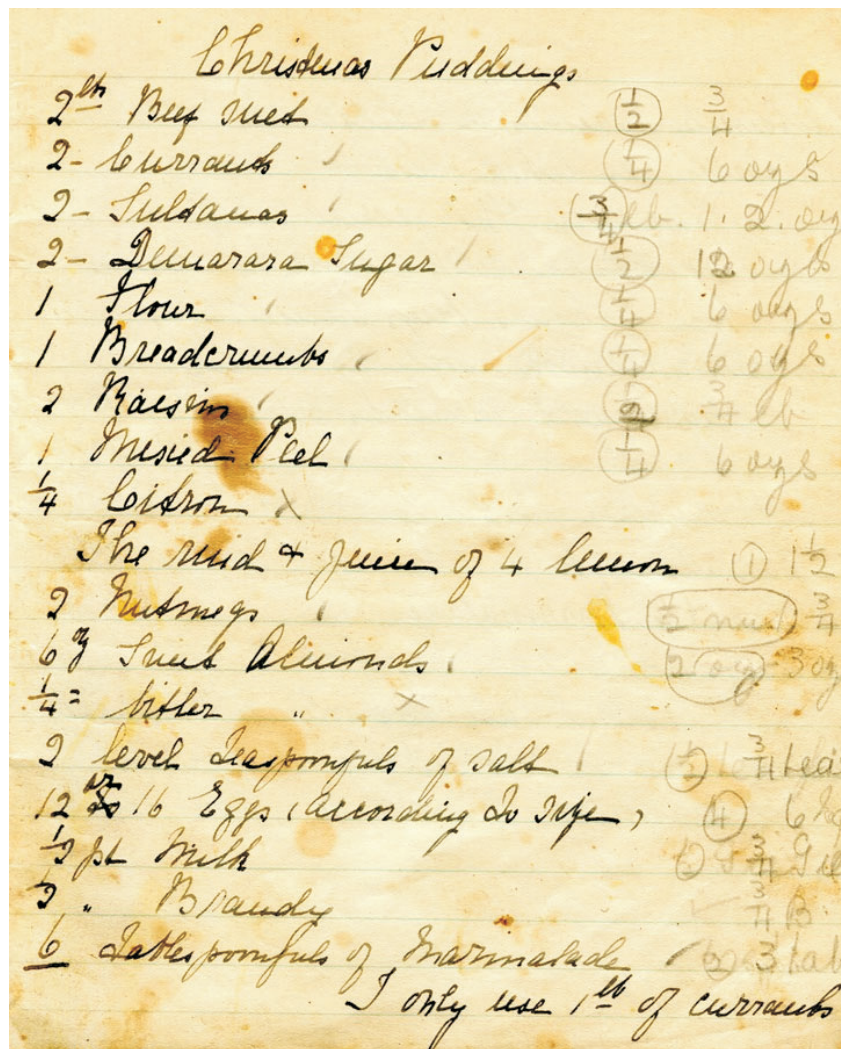 Christmas Puddings
2 lb Beef suet (1/2) 3/4
2 - Currants (1/4) 6 ozs
2 - Sultanas (3/4) lb. 1. 2. oz
2 - Demarara Sugar (1/2) 12 ozs
1 Flour (1/4) 6 ozs
1 Breadcrumbs (1/4) 6 ozs
2 Raisins (1/2) 3/4 lb
1 Mixed Peel (1/4) 6 ozs
1/4 Citron x
The rind & juice of 4 lemon (1) 1 1/2
2 Nutmegs (1/2 nut) 3/4
6 oz Sweet Almonds (2 oz) 3 oz
1/4 = bitter " x
2 level teaspoonfuls of salt (1/2) 3/4 tea
12 or 16 Eggs (according to size) (4) 6
1/2 pt Milk 3/4
1/2 " Brandy 3/4 B
6 Tablespoonfuls of Marmalade (2) 3 tab
I only use 1 lb of currants